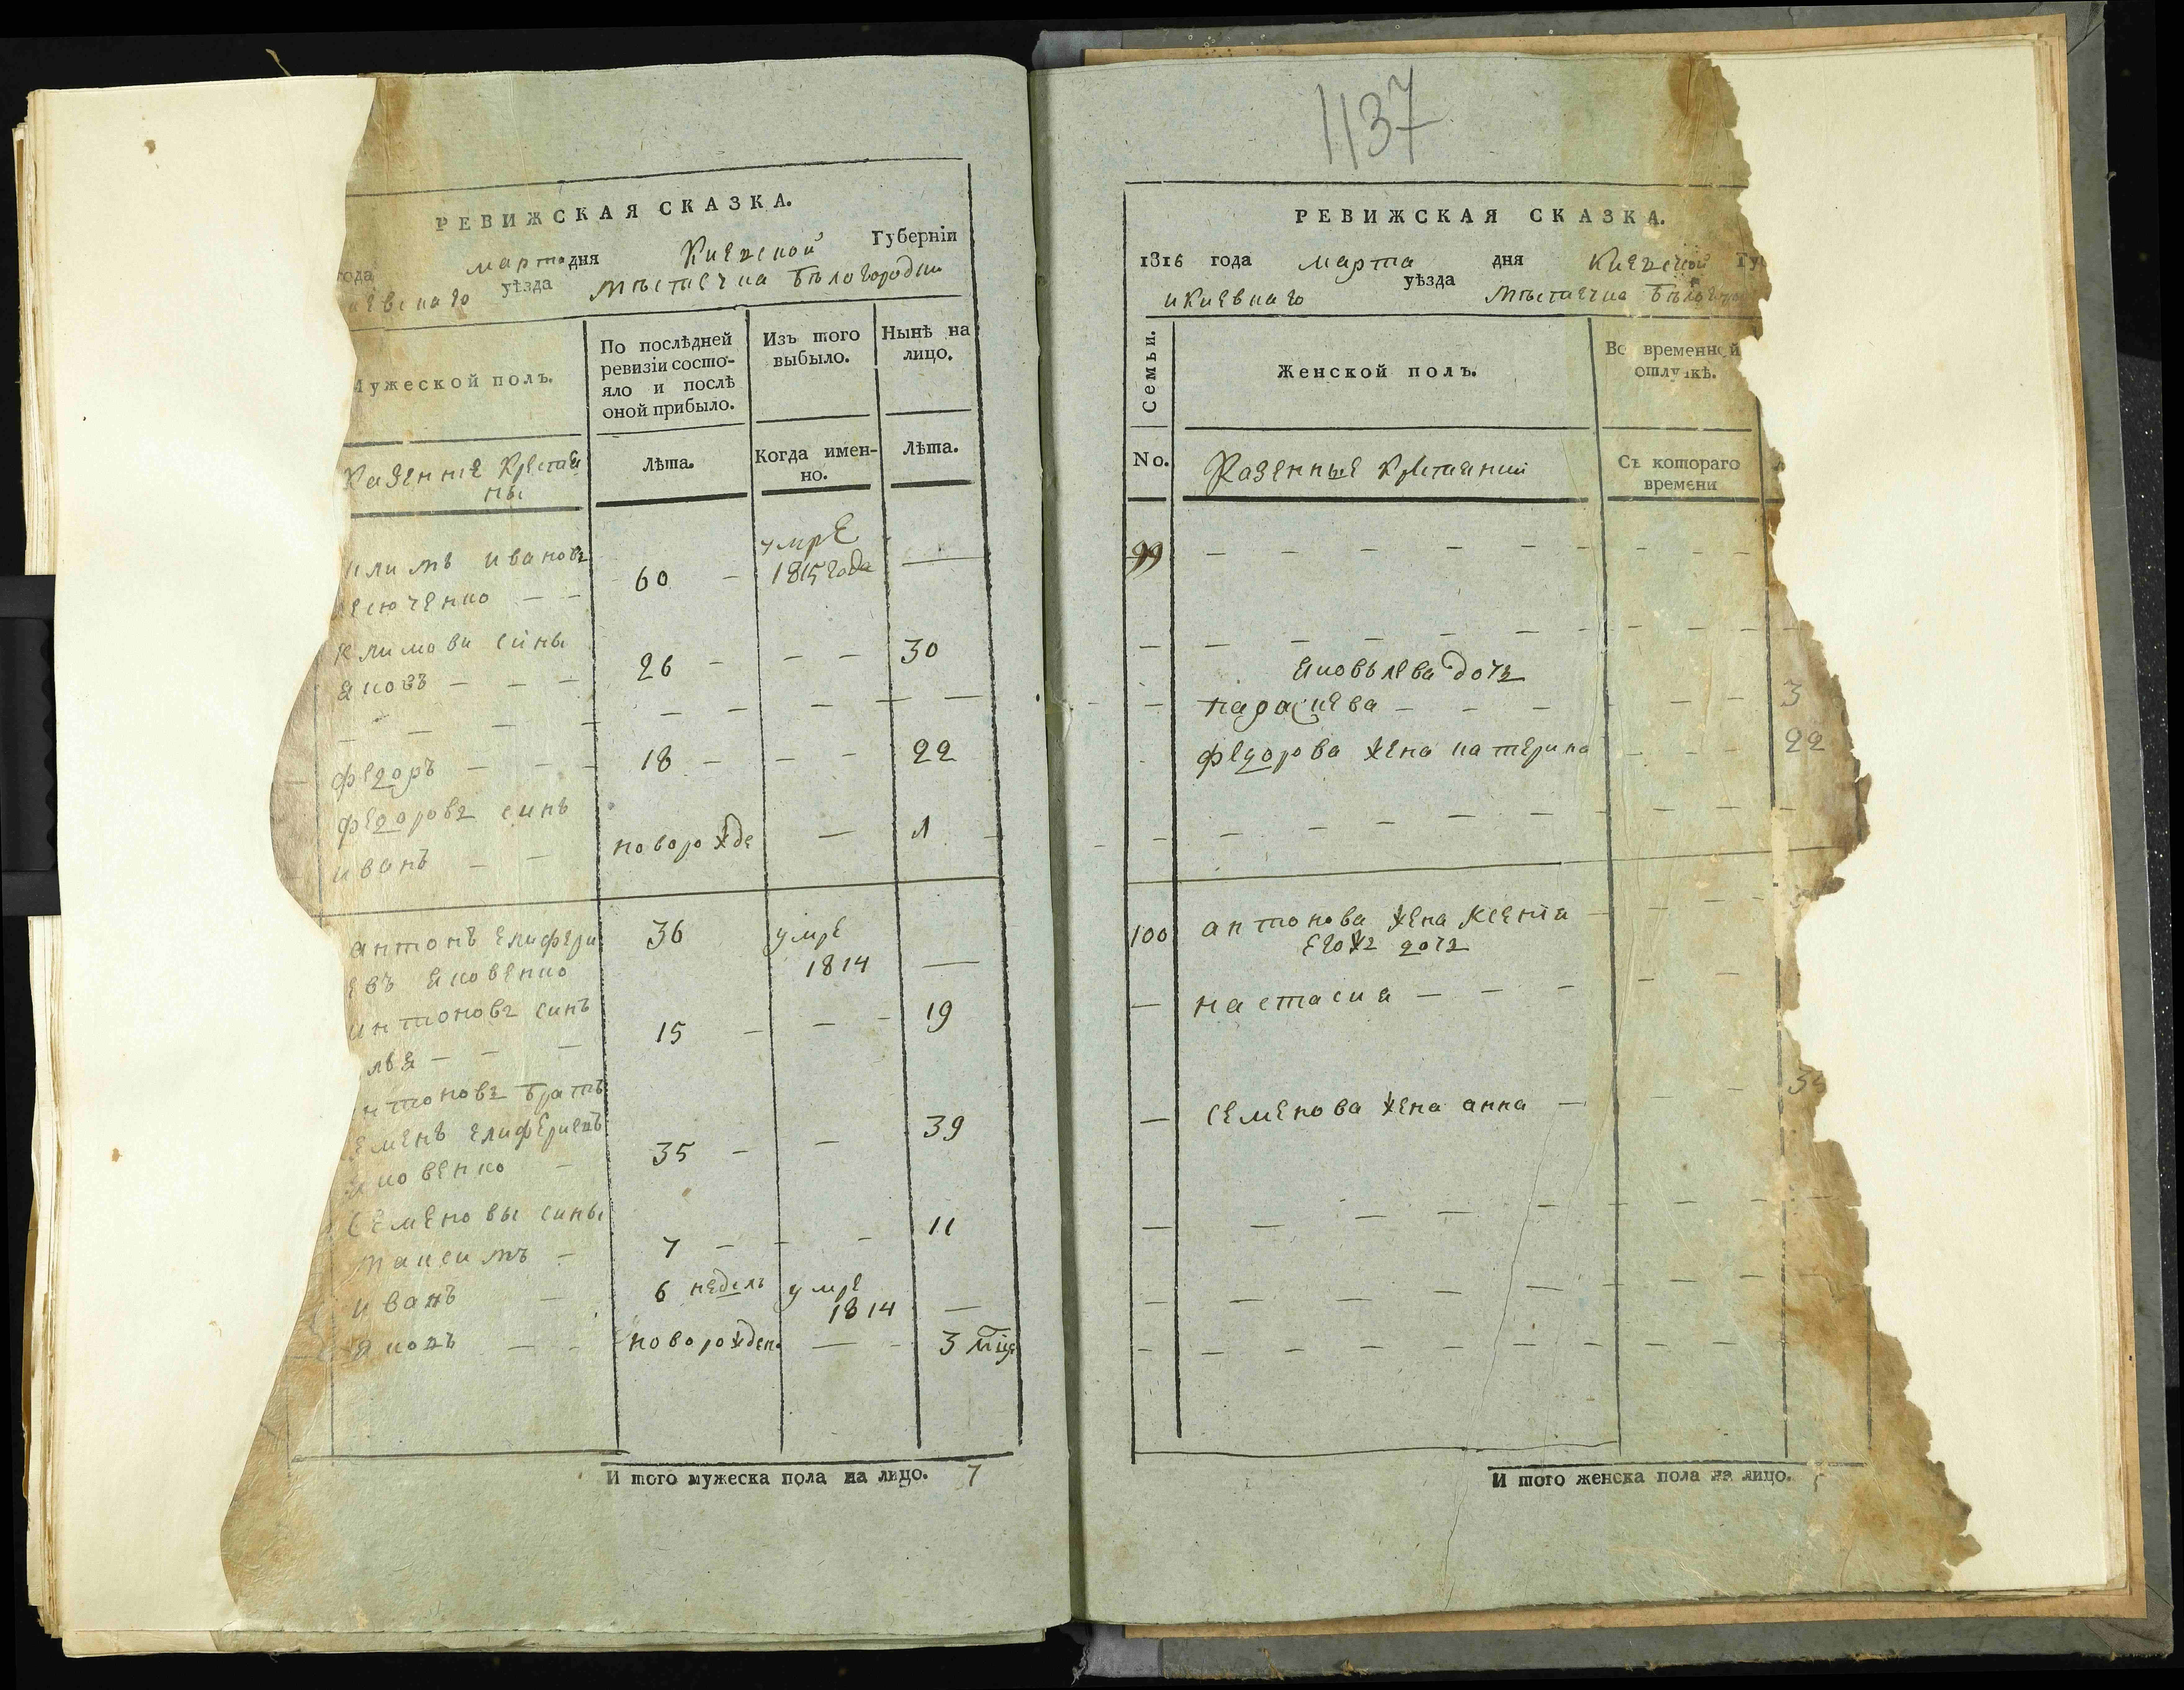 РЕВИЖСКАЯ СКАЗКА.
года марта дня Киевской Губерніи
уѣзда Мѣстечка Бѣлогородки
Мужеской полъ.
По послѣдней
ревизіи состо-
яло и послѣ
оной прибыло.
Изъ того
выбыло.
Нынѣ на
лицо.
Казенніе Крестая
ны
Лѣта.
Когда имен-
но.
Лѣта.
климъ ивановъ умре
60 - 1815 года —
климови сины
яковъ - - - 26 - - - 30
федоръ - - - 18 - - - 22
федоровъ синъ
иванъ - - новорожде — 1
антонъ елифери 36 умре
евъ яковенко 1814 —
антоновъ синъ
15 - - - 19
антоновъ братъ
семенъ елифериевъ
яковенко - 35 - - 39
семеновы сины
максимъ - 7 - - - 11
иванъ - 6 недель умре
1814 —
яковъ - - новорожден — - 3 мця
И того мужеска пола на лицо. 7
1137
РЕВИЖСКАЯ СКАЗКА.
1816 года марта дня Киевской Гу
икиевкаго уѣзда Мѣстечка Бѣлогоро
Семьи.
Женской полъ.
Во временной
отлучкѣ.
No.
Казенные Крестянки
Съ котораго
времени
99 - - - - - -
яковълева дочъ
параскева - - - - - 3
федорова жена катерина - - 22
100 антонова жена ксенія - - -
егожъ дочъ
— настасия - - - - -
— семенова жена анна - - 35
И того женска пола на лицо. 5